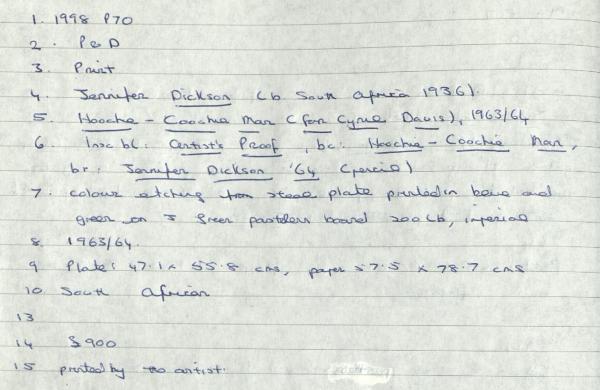 1. 1998 P70
2. P&D
3. Print
4. Jennifer Dickson (b South Africa 1936).
5 Hoochie-Coochie Man (for Cyril Davis), 1963/64
6 Insc bl: Artist's Proof, bc: Hoochie-Coochie Man,
br: Jennifer Dickson '64 (pencil)
7. colour etching from steel plate printed in blue and
green on J Green board 200 lb, imperial
8. 1963/64.
9 Plate: 47.1 x 55.8 cms, paper 57.5 x 78.7 cms
10 South African
13
14 $900
15 printed by the artist.